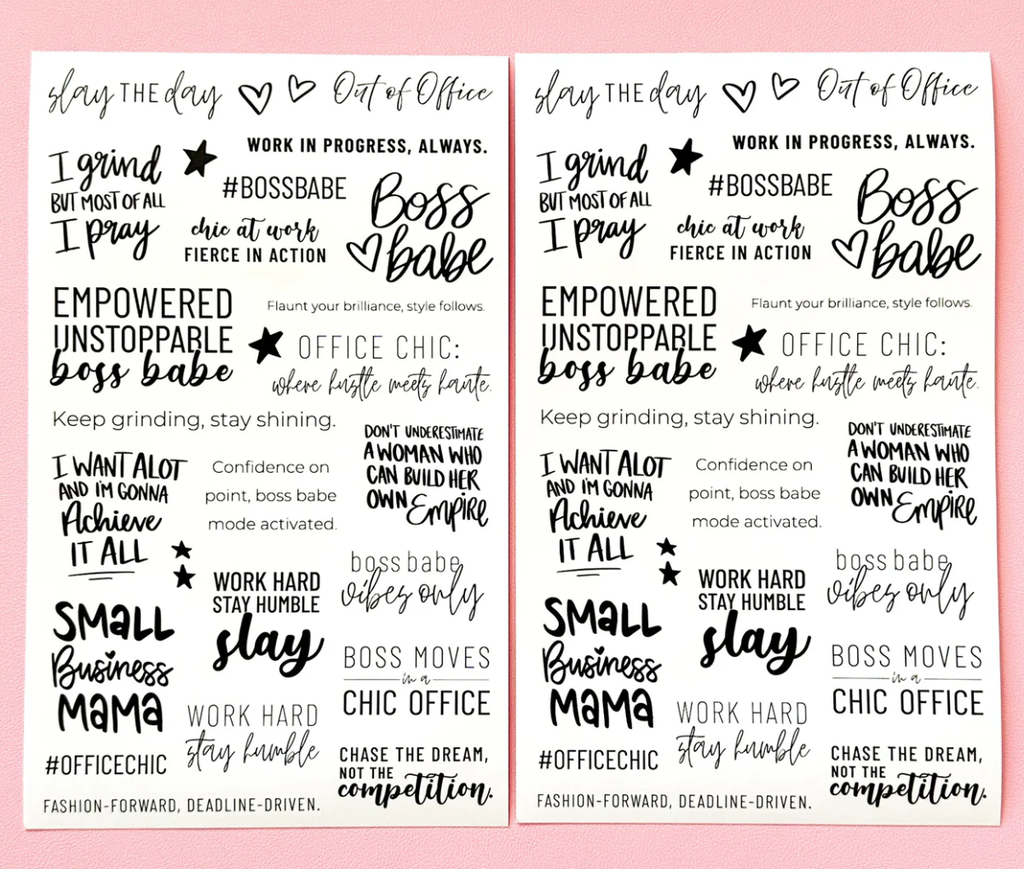 slay THE day
Out of Office
WORK IN PROGRESS, ALWAYS.
I grind
BUT MOST OF ALL
I pray
#BOSSBABE
Boss
babe
chic at work
FIERCE IN ACTION
EMPOWERED
UNSTOPPABLE
boss babe
Flaunt your brilliance, style follows.
OFFICE CHIC:
where hustle meets haute.
Keep grinding, stay shining.
DON'T UNDERESTIMATE
A WOMAN WHO
CAN BUILD HER
OWN EMPIRE
I WANT ALOT
AND I'M GONNA
Achieve
IT ALL
Confidence on
point, boss babe
mode activated.
boss babe
vibes only
WORK HARD
STAY HUMBLE
slay
SMALL
Business
MAMA
BOSS MOVES
in a
CHIC OFFICE
WORK HARD
stay humble
#OFFICECHIC
CHASE THE DREAM,
NOT THE
competition.
FASHION-FORWARD, DEADLINE-DRIVEN.
slay THE day
Out of Office
WORK IN PROGRESS, ALWAYS.
I grind
BUT MOST OF ALL
I pray
#BOSSBABE
Boss
babe
chic at work
FIERCE IN ACTION
EMPOWERED
UNSTOPPABLE
boss babe
Flaunt your brilliance, style follows.
OFFICE CHIC:
where hustle meets haute.
Keep grinding, stay shining.
DON'T UNDERESTIMATE
A WOMAN WHO
CAN BUILD HER
OWN EMPIRE
I WANT ALOT
AND I'M GONNA
Achieve
IT ALL
Confidence on
point, boss babe
mode activated.
boss babe
vibes only
WORK HARD
STAY HUMBLE
slay
SMALL
Business
MAMA
BOSS MOVES
in a
CHIC OFFICE
WORK HARD
stay humble
#OFFICECHIC
CHASE THE DREAM,
NOT THE
competition.
FASHION-FORWARD, DEADLINE-DRIVEN.